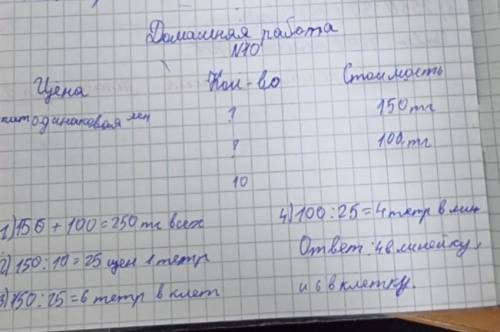 Домашняя работа
N70
Цена Кол-во Стоимость
одинаковая ? 150 тг
? 100 тг
10
1) 150 + 100 = 250 тг всех
2) 150 : 10 = 25 цен 1 тетр
3) 150 : 25 = 6 тетр в клет
4) 100 : 25 = 4 тетр в лин
Ответ: 4 в линейку,
и 6 в клетку.